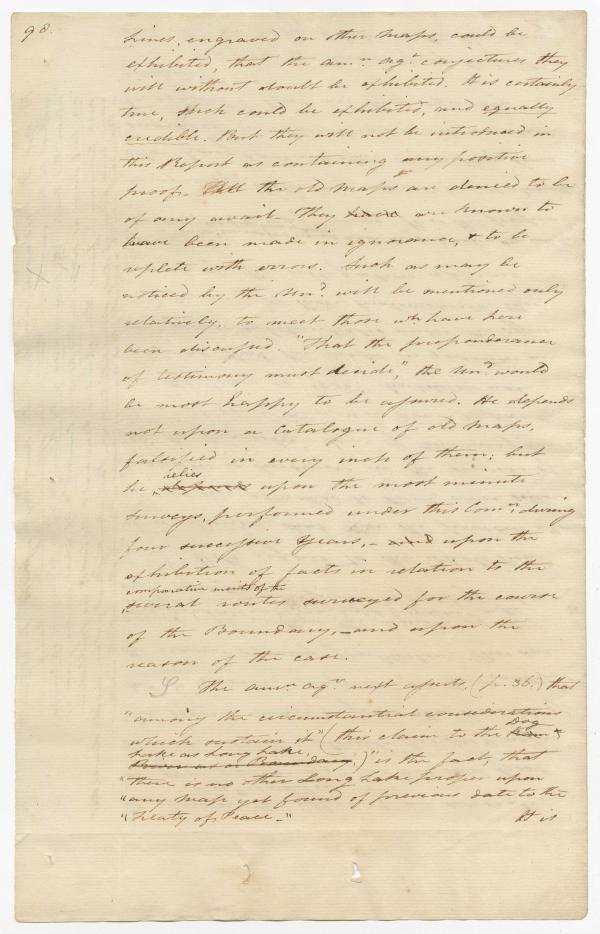 98.
Lines, engraved on other maps, could be
exhibited, that the amn. agt. conjectures they
will without doubt be exhibited. It is certainly
true, such could be exhibited, and equally
credible. But they will not be introduced in
this Report as containing any positive
proof. All the old maps are denied to be
of any avail. They have are known to
have been made in ignorance, & to be
replete with errors. Such as may be
noticed by the Und. will be mentioned only
relatively, to meet those wh. have here
been discussed. "That the preponderance
of testimony must decide," the Und. would
be most happy to be assured. He depends
not upon a Catalogue of old maps,
falsified in every inch of them; but
he relies depends upon the most minute
surveys, performed under this Comn. during
four successive years, – and upon the
exhibition of facts in relation to the
comparative merits of the
several routes surveyed for the course
of the Boundary, – and upon the
reason of the case.
The amn. agt. next asserts, (p. 36.) that
"among the circumstantial considerations
which sustain it" (this claim to the Dog
Lake as Long Lake,
River as a Boundary,) "is the fact, that
"there is no other Long Lake proper upon
"any map yet found of previous date to the
"Treaty of Peace."
It is